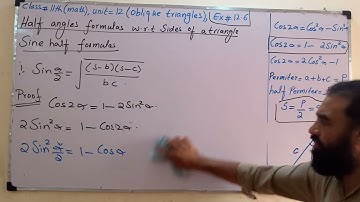 Class # 11th (math), unit = 12 (oblique triangles), Ex # 12.6
Half angles formulas w.r.t Sides of a triangle
Sine half formulas
∴ Sin α/2 = √((s-b)(s-c)/bc)
Proof Cos2α = 1 - 2Sin²α.
2Sin²α = 1 - Cos2α.
2Sin² α/2 = 1 - Cosα
Cos2α = Cos²α - Sin²
Cos2α = 1 - 2Sin²α
Cos2α = 2Cos²α - 1
Permiter = a+b+c = P
half Permiter =
S = P/2 =
C